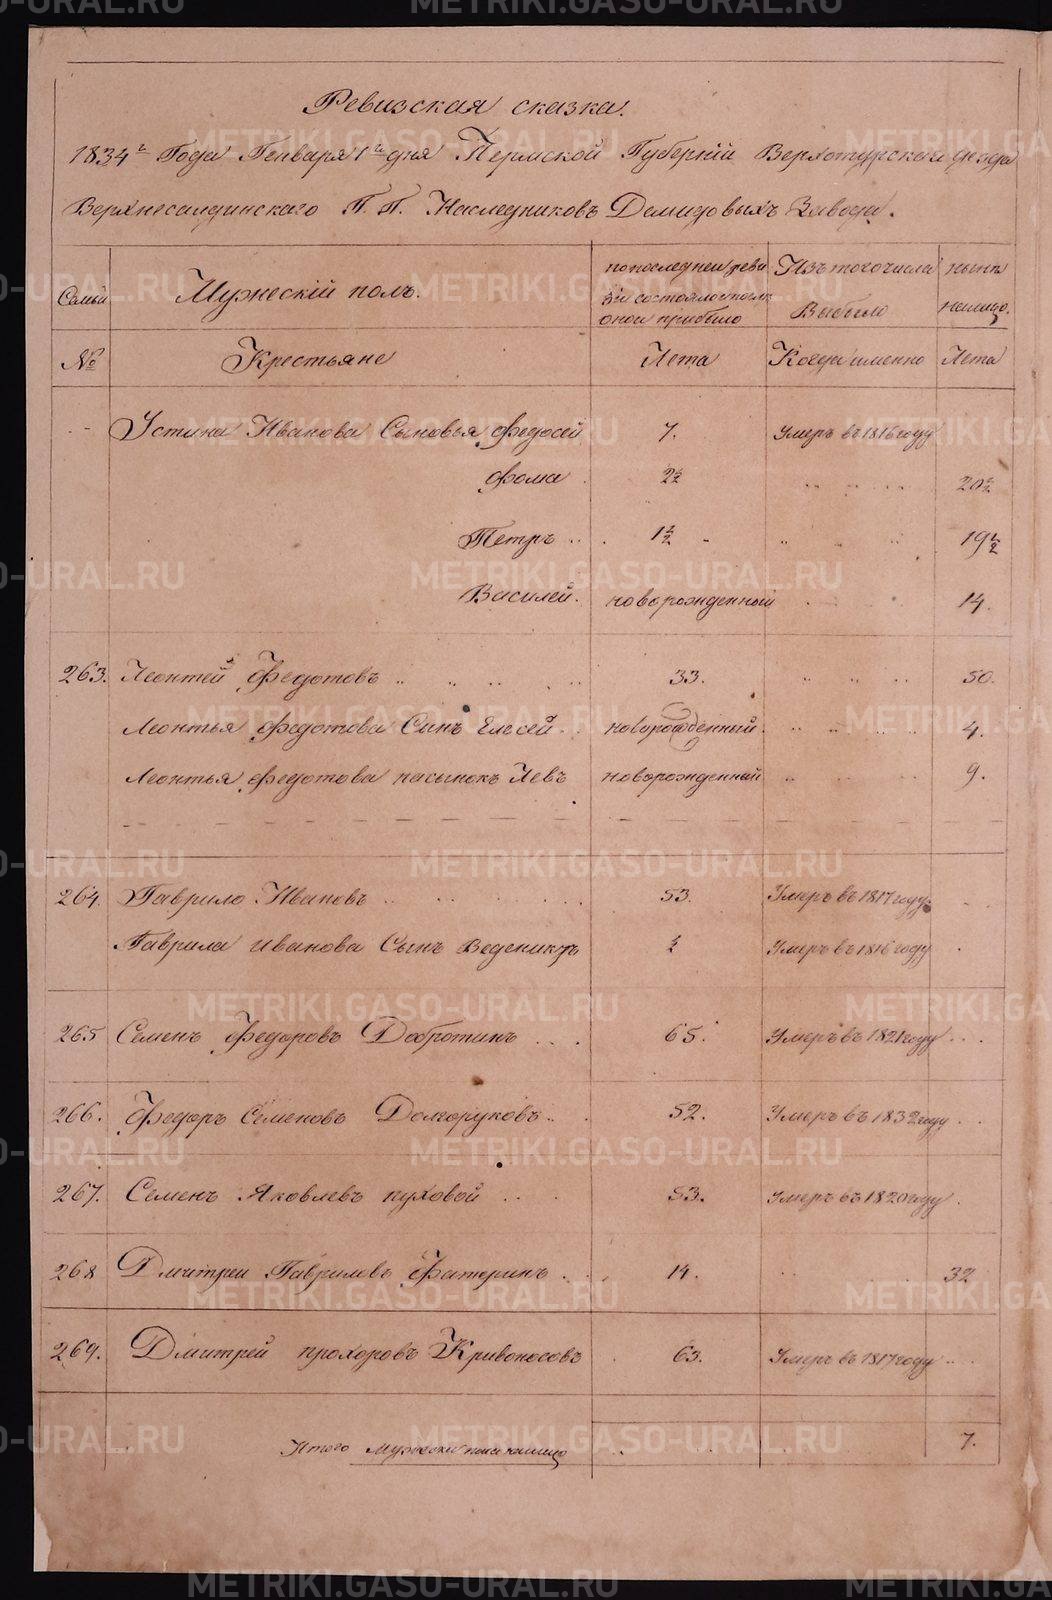 METRIKI.GASO-URAL.RU
Ревизская сказка.
1834го Года Генваря 1го дня Пермской Губернiи Верхотурскаго уезда
Верхнесалдинскаго Г.Г. Наследниковъ Демидовыхъ Завода.
Семьи Мужескiй полъ. попоследней реви зiи состояло и после оной прибыло Изътогочисла Выбыло ныне налицо.
№ Крестьяне Лета Когда именно Лета
Устина Иванова Сыновья Федосей 7. Умеръ въ 1816 году
Фома 2½ 20½
Петръ 1½ 19½
Василей. новорожденный 14.
263. Леонтей Федотовъ 33. 50.
Леонтья Федотова Сынъ Елесей новорожденный. 4.
Леонтья Федотова пасынокъ Левъ новорожденный 9.
264. Гаврило Ивановъ 53. Умеръ въ 1817 году.
Гаврила Иванова Сынъ Веденихтъ ½ Умеръ въ 1816 году
265 Семенъ Федоровъ Добротинъ 65. Умеръ въ 1821 году
266. Федоръ Семеновъ Долгоруковъ 52. Умеръ въ 1832 году
267. Семенъ Яковлевъ пуховой 53. Умеръ въ 1820 году
268 Дмитреи Гавриловъ Фатеринъ 14. 32
269. Дмитрей прохоровъ Кривоносовъ 63. Умеръ въ 1817 году
Итого мужеска пола налицо 7.